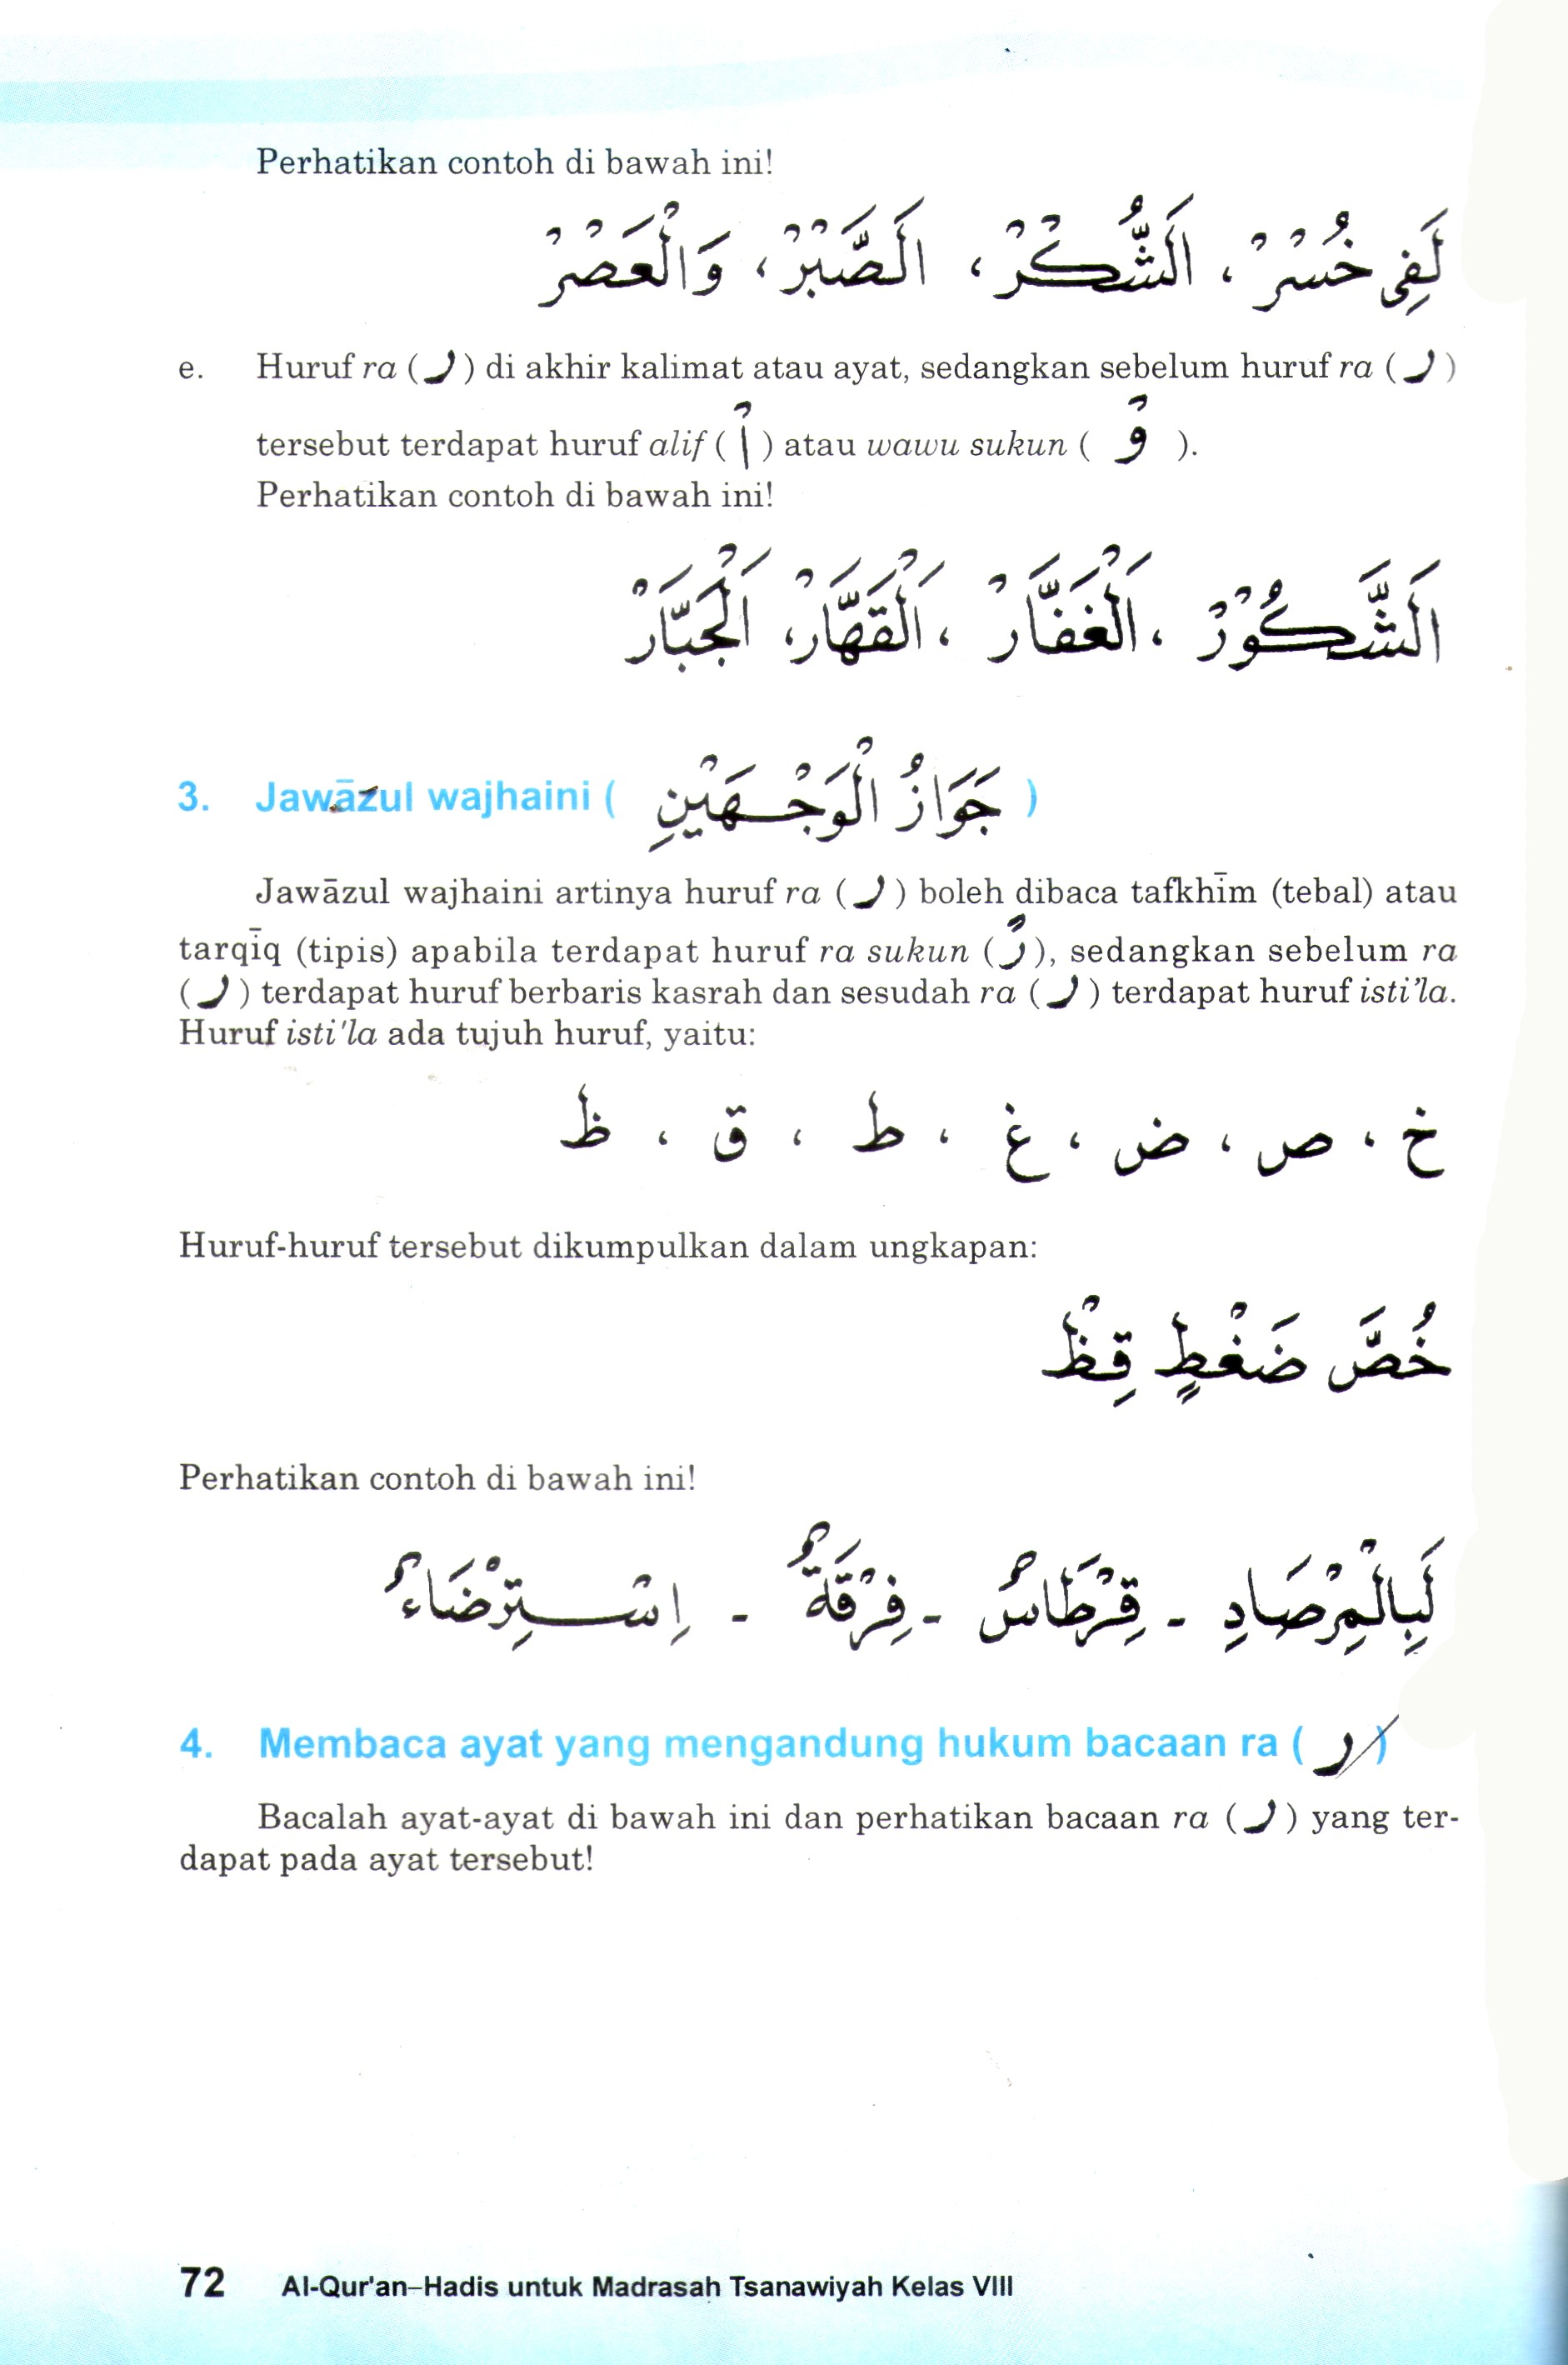 Perhatikan contoh di bawah ini!
لَفِى خُسْرْ ، اَلشُّكْرْ ، اَلصَّبْرْ ، وَالْعَصْرْ
e. Huruf ra (ر) di akhir kalimat atau ayat, sedangkan sebelum huruf ra (ر)
tersebut terdapat huruf alif (اْ) atau wawu sukun ( وْ ).
Perhatikan contoh di bawah ini!
اَلشَّكُوْرْ ، اَلْغَفَّارْ ، اَلْقَهَّارْ ، اَلْجَبَّارْ
3. Jawāzul wajhaini ( جَوَازُ الْوَجْهَيْنِ )
Jawāzul wajhaini artinya huruf ra (ر) boleh dibaca tafkhīm (tebal) atau
tarqīq (tipis) apabila terdapat huruf ra sukun (رْ), sedangkan sebelum ra
(ر) terdapat huruf berbaris kasrah dan sesudah ra (ر) terdapat huruf isti'la.
Huruf isti'la ada tujuh huruf, yaitu:
خ ، ص ، ض ، غ ، ط ، ق ، ظ
Huruf-huruf tersebut dikumpulkan dalam ungkapan:
خُصَّ ضَغْطٍ قِظْ
Perhatikan contoh di bawah ini!
لَبِالْمِرْصَادِ - قِرْطَاسٌ - فِرْقَةٌ - اِسْتِرْضَاءٌ
4. Membaca ayat yang mengandung hukum bacaan ra ( ر )
Bacalah ayat-ayat di bawah ini dan perhatikan bacaan ra (ر) yang ter-
dapat pada ayat tersebut!
72 Al-Qur'an–Hadis untuk Madrasah Tsanawiyah Kelas VIII